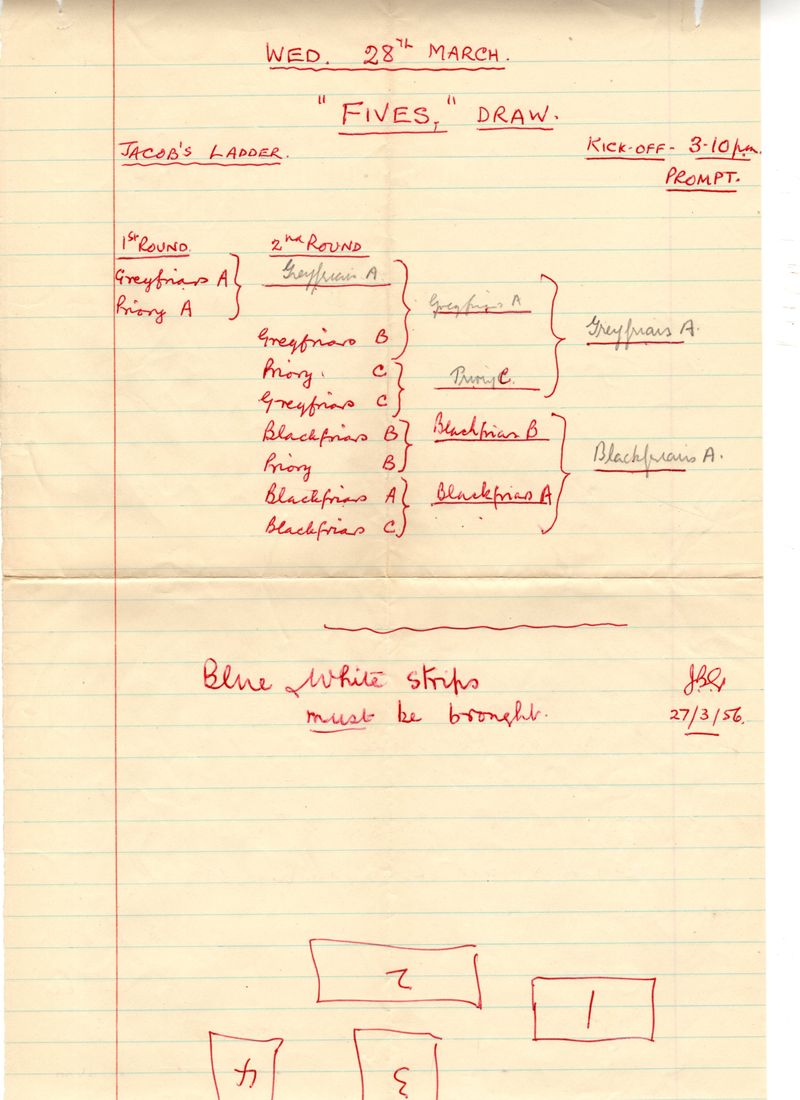 WED. 28TH MARCH.
"FIVES," DRAW.
JACOB'S LADDER. KICK-OFF - 3-10 p.m.
PROMPT.
1st ROUND. 2nd ROUND
Greyfriars A Greyfriars A
Greyfriars A
Priory A
Greyfriars A.
Greyfriars B
Priory. C Priory C.
Greyfriars C
Blackfriars B Blackfriars B
Blackfriars A.
Priory B
Blackfriars A Blackfriars A
Blackfriars C
Blue & White strips
must be brought.
27/3/56.
2
1
4
3